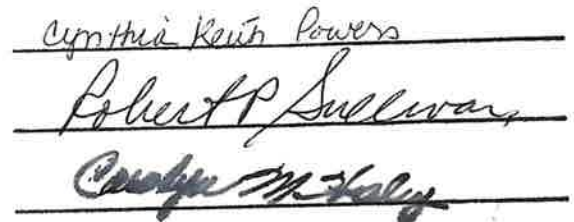 Cynthia Keith Powers
Robert P Sullivan
Carolyn